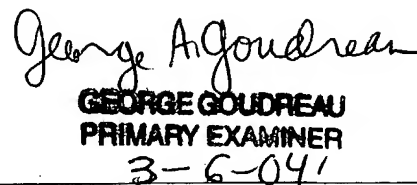 George A. Goudreau
GEORGE GOUDREAU
PRIMARY EXAMINER
3-6-04